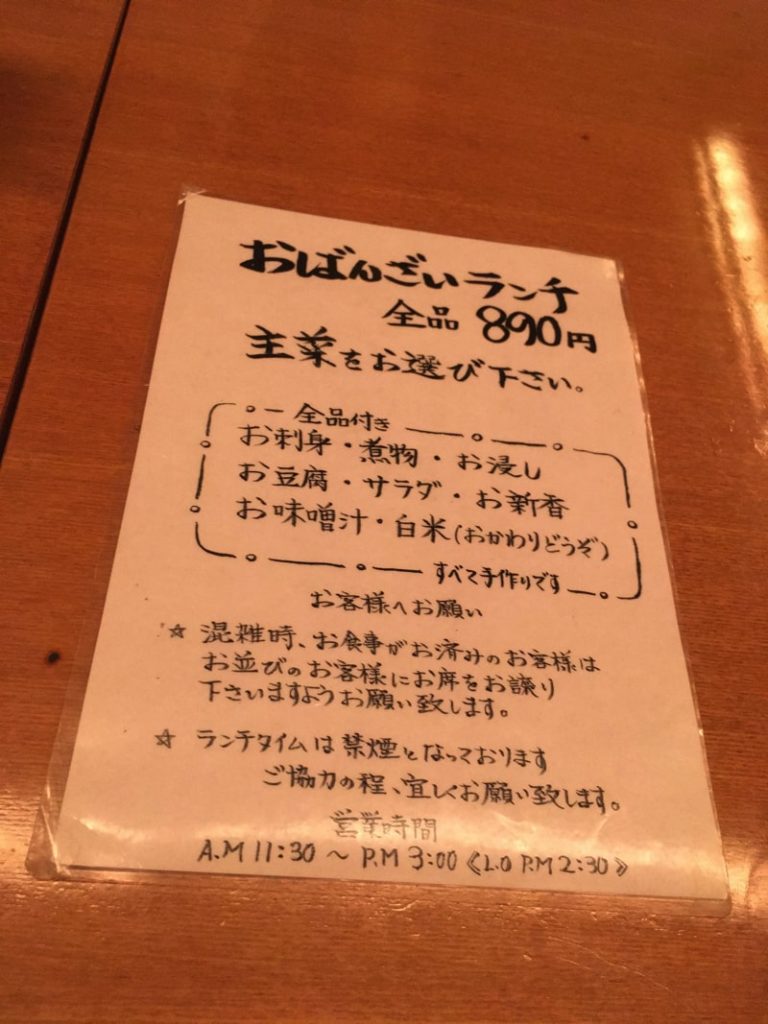 おばんざいランチ
全品 890円
主菜をお選び下さい。
全品付き
お刺身・煮物・お浸し
お豆腐・サラダ・お新香
お味噌汁・白米(おかわりどうぞ)
すべて手作りです
お客様へお願い
☆ 混雑時、お食事がお済みのお客様は
お並びのお客様にお席をお譲り
下さいますようお願い致します。
☆ ランチタイムは禁煙となっております
ご協力の程、宜しくお願い致します。
営業時間
A.M 11:30 ~ P.M 3:00 《L.O P.M 2:30》